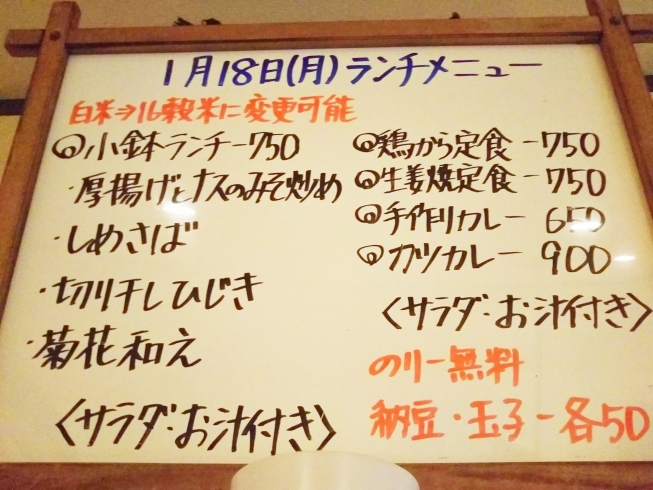 1月18日(月)ランチメニュー
白米⇒16穀米に変更可能
◎小鉢ランチー750
・厚揚げとナスのみそ炒め
・しめさば
・切り干しひじき
・菊花和え
〈サラダ・お汁付き〉
◎鶏から定食ー750
◎生姜焼定食ー750
◎手作りカレー 650
◎カツカレー 900
〈サラダ・お汁付き〉
のりー無料
納豆・玉子ー各50